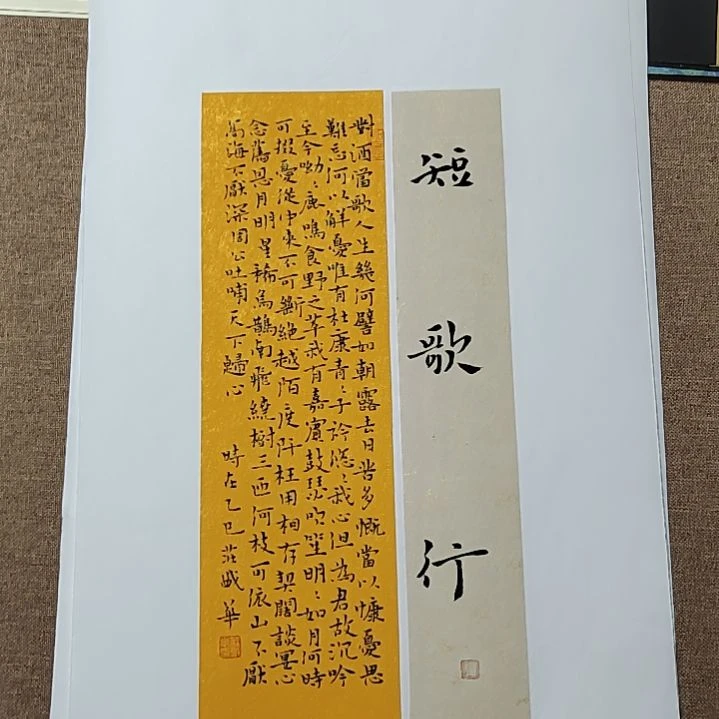 短歌行
對酒當歌人生幾何譬如朝露去日苦多慨當以慷憂思
難忘何以解憂唯有杜康青〻子衿悠〻我心但為君故沉吟
至今呦〻鹿鳴食野之苹我有嘉賓鼓瑟吹笙明〻如月何時
可掇憂從中來不可斷絕越陌度阡枉用相存契闊談宴心
念舊恩月明星稀烏鵲南飛繞樹三匝何枝可依山不厭
高海不厭深周公吐哺天下歸心
時在乙巳莊 華